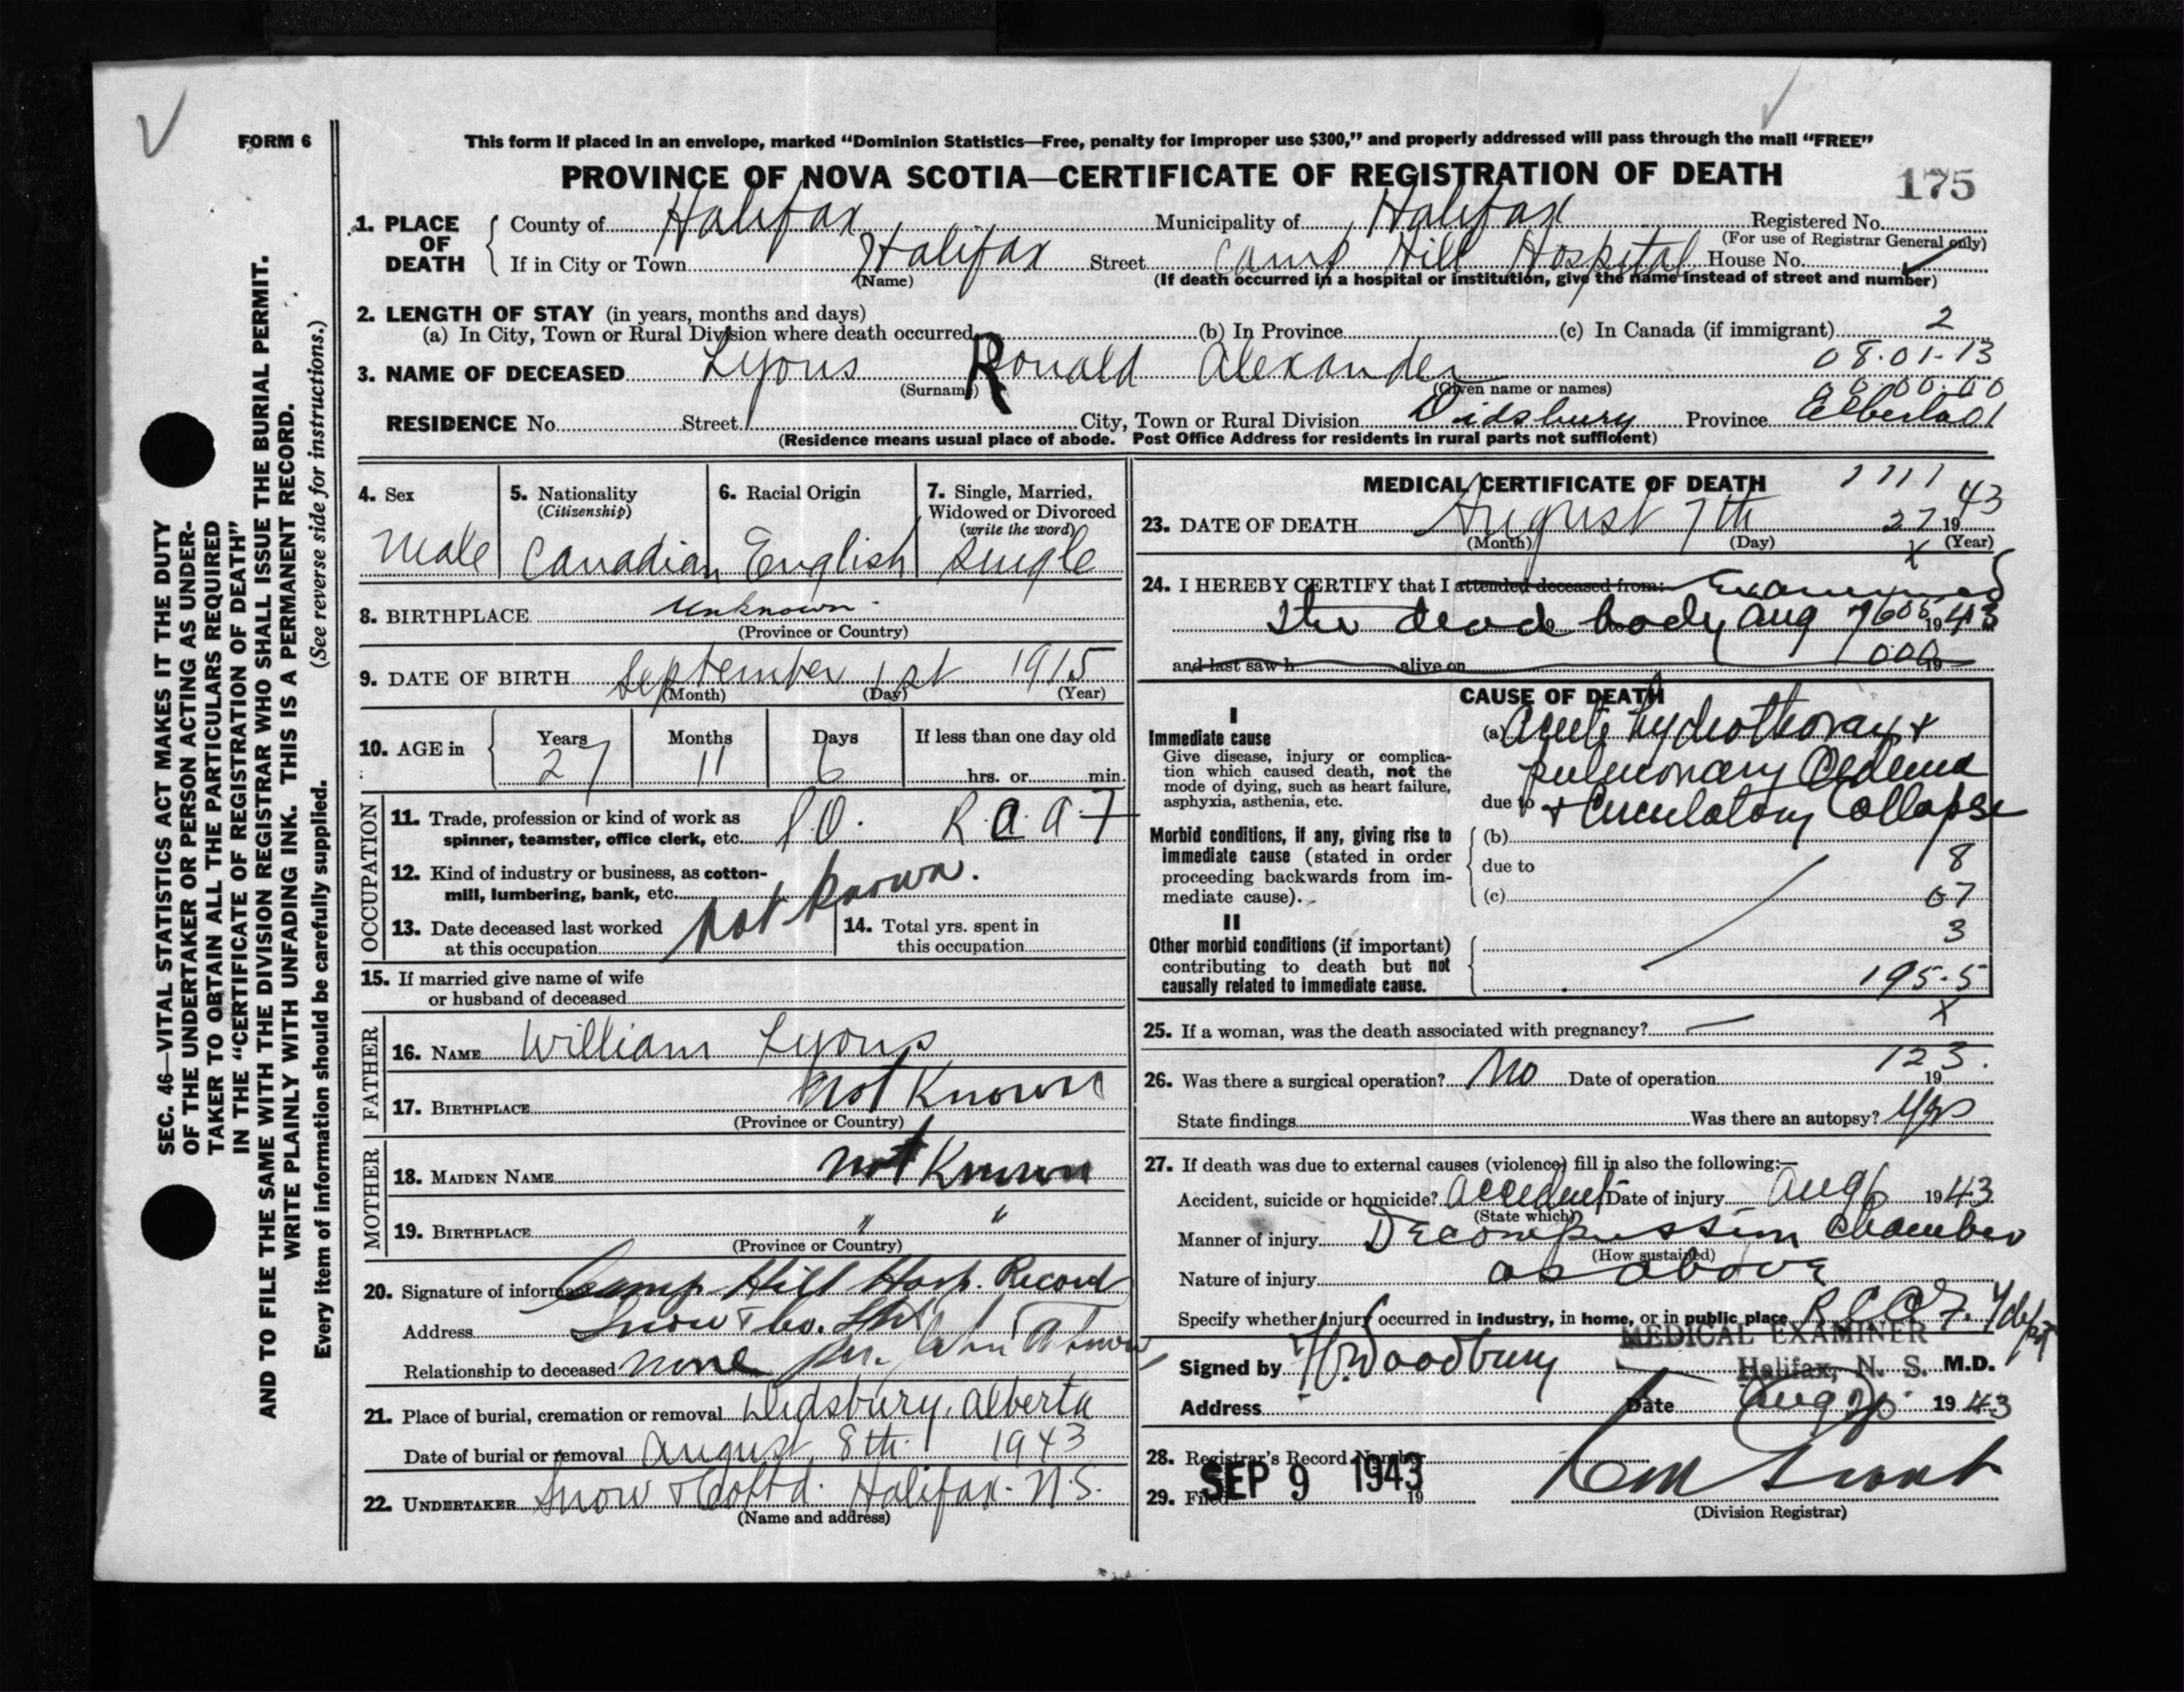 FORM 6
This form if placed in an envelope, marked “Dominion Statistics—Free, penalty for improper use $300,” and properly addressed will pass through the mail “FREE”
PROVINCE OF NOVA SCOTIA—CERTIFICATE OF REGISTRATION OF DEATH
175
SEC. 46—VITAL STATISTICS ACT MAKES IT THE DUTY
OF THE UNDERTAKER OR PERSON ACTING AS UNDER-
TAKER TO OBTAIN ALL THE PARTICULARS REQUIRED
IN THE “CERTIFICATE OF REGISTRATION OF DEATH”
AND TO FILE THE SAME WITH THE DIVISION REGISTRAR WHO SHALL ISSUE THE BURIAL PERMIT.
WRITE PLAINLY WITH UNFADING INK. THIS IS A PERMANENT RECORD.
Every item of information should be carefully supplied. (See reverse side for instructions.)
1. PLACE OF DEATH County of Halifax Municipality of Halifax Registered No.
(For use of Registrar General only)
If in City or Town Halifax Street Camp Hill Hospital House No.
(Name) (If death occurred in a hospital or institution, give the name instead of street and number)
2. LENGTH OF STAY (in years, months and days)
(a) In City, Town or Rural Division where death occurred (b) In Province (c) In Canada (if immigrant) 2
08.01-13
3. NAME OF DECEASED Lyons Ronald Alexander
(Surname) (Given name or names) 00.00
RESIDENCE No. Street City, Town or Rural Division Didsbury Province Alberta
(Residence means usual place of abode. Post Office Address for residents in rural parts not sufficient)
4. Sex Male
5. Nationality (Citizenship) Canadian
6. Racial Origin English
7. Single, Married, Widowed or Divorced (write the word) Single
8. BIRTHPLACE Unknown
(Province or Country)
9. DATE OF BIRTH September 1st 1915
(Month) (Day) (Year)
10. AGE in Years 27 Months 11 Days 6 If less than one day old
hrs. or min.
OCCUPATION
11. Trade, profession or kind of work as
spinner, teamster, office clerk, etc. P.O. R.A.A.F
12. Kind of industry or business, as cotton-
mill, lumbering, bank, etc. not known.
13. Date deceased last worked
at this occupation
14. Total yrs. spent in
this occupation
15. If married give name of wife
or husband of deceased
FATHER
16. NAME William Lyons
17. BIRTHPLACE Not Known
(Province or Country)
MOTHER
18. MAIDEN NAME Not Known
19. BIRTHPLACE " "
(Province or Country)
20. Signature of informant Camp Hill Hosp. Record
Address Snow & Co. Ltd
Relationship to deceased none per. John A Snow
21. Place of burial, cremation or removal Didsbury, Alberta
Date of burial or removal August 8th. 1943
22. UNDERTAKER Snow & Co Ltd. Halifax. N.S.
(Name and address)
MEDICAL CERTIFICATE OF DEATH 1111
23. DATE OF DEATH August 7th 27 1943
(Month) (Day) (Year)
x
24. I HEREBY CERTIFY that I attended deceased from: Examined
the dead body Aug 7 605 1943
and last saw h alive on 19 000
CAUSE OF DEATH
I
Immediate cause
Give disease, injury or complica-
tion which caused death, not the
mode of dying, such as heart failure,
asphyxia, asthenia, etc.
(a) Acute hydrothorax &
pulmonary Oedema
due to & Circulatory Collapse
Morbid conditions, if any, giving rise to
immediate cause (stated in order
proceeding backwards from im-
mediate cause).
(b)
due to 8
(c) 07
II
Other morbid conditions (if important)
contributing to death but not
causally related to immediate cause.
3
195-5
25. If a woman, was the death associated with pregnancy? — x
123.
26. Was there a surgical operation? No Date of operation 19
State findings Was there an autopsy? Yes
27. If death was due to external causes (violence) fill in also the following:—
Accident, suicide or homicide? Accident Date of injury Aug 6 1943
(State which)
Manner of injury Decompression Chamber
(How sustained)
Nature of injury as above
Specify whether injury occurred in industry, in home, or in public place R.C.A.F. Y depot
MEDICAL EXAMINER
Signed by Woodbury Halifax, N. S. M.D.
Address Date Aug 1943
28. Registrar's Record Number
29. Filed SEP 9 1943 19
(Division Registrar)